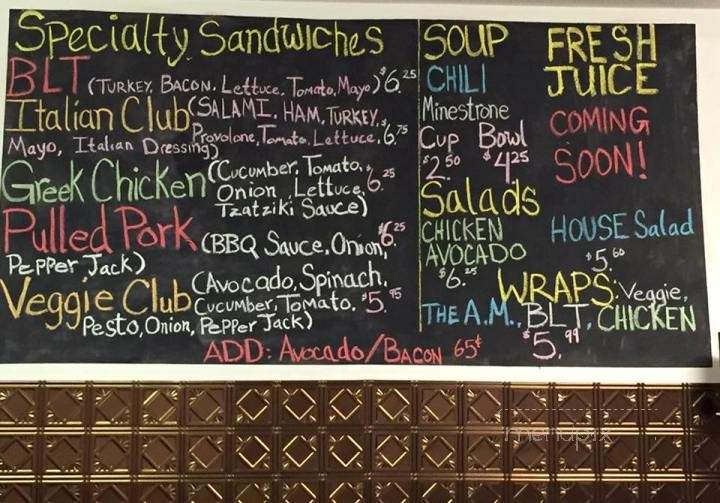 Specialty Sandwiches
BLT (Turkey, Bacon, Lettuce, Tomato, Mayo) $6.25
Italian Club (Salami, Ham, Turkey,
Mayo, Italian Dressing) Provolone, Tomato, Lettuce, $6.75
Greek Chicken (Cucumber, Tomato,
Onion Lettuce, $6.25
Tzatziki Sauce)
Pulled Pork (BBQ Sauce, Onion, $6.25
Pepper Jack)
Veggie Club (Avocado, Spinach,
Cucumber, Tomato, $5.95
Pesto, Onion, Pepper Jack)
ADD: Avocado/Bacon 65¢
SOUP
CHILI
Minestrone
Cup Bowl
$2.50 $4.25
FRESH
JUICE
COMING
SOON!
Salads
CHICKEN
AVOCADO
$6.25
HOUSE Salad
$5.60
WRAPS: Veggie,
THE A.M., BLT, CHICKEN
$5.99
menupix